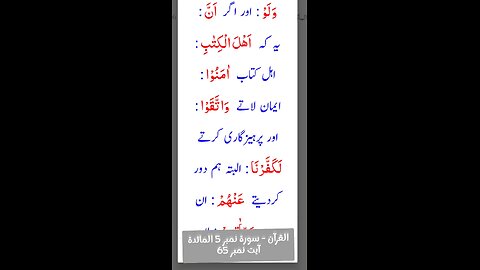 وَلَوْ : اور اگر اَنَّ :
یہ کہ اَهْلَ الْكِتٰبِ :
اہل کتاب اٰمَنُوْا :
ایمان لاتے وَاتَّقَوْا :
اور پرہیزگاری کرتے
لَكَفَّرْنَا : البتہ ہم دور
کردیتے عَنْهُمْ : ان
القرآن - سورۃ نمبر 5 المائدۃ
آیت نمبر 65